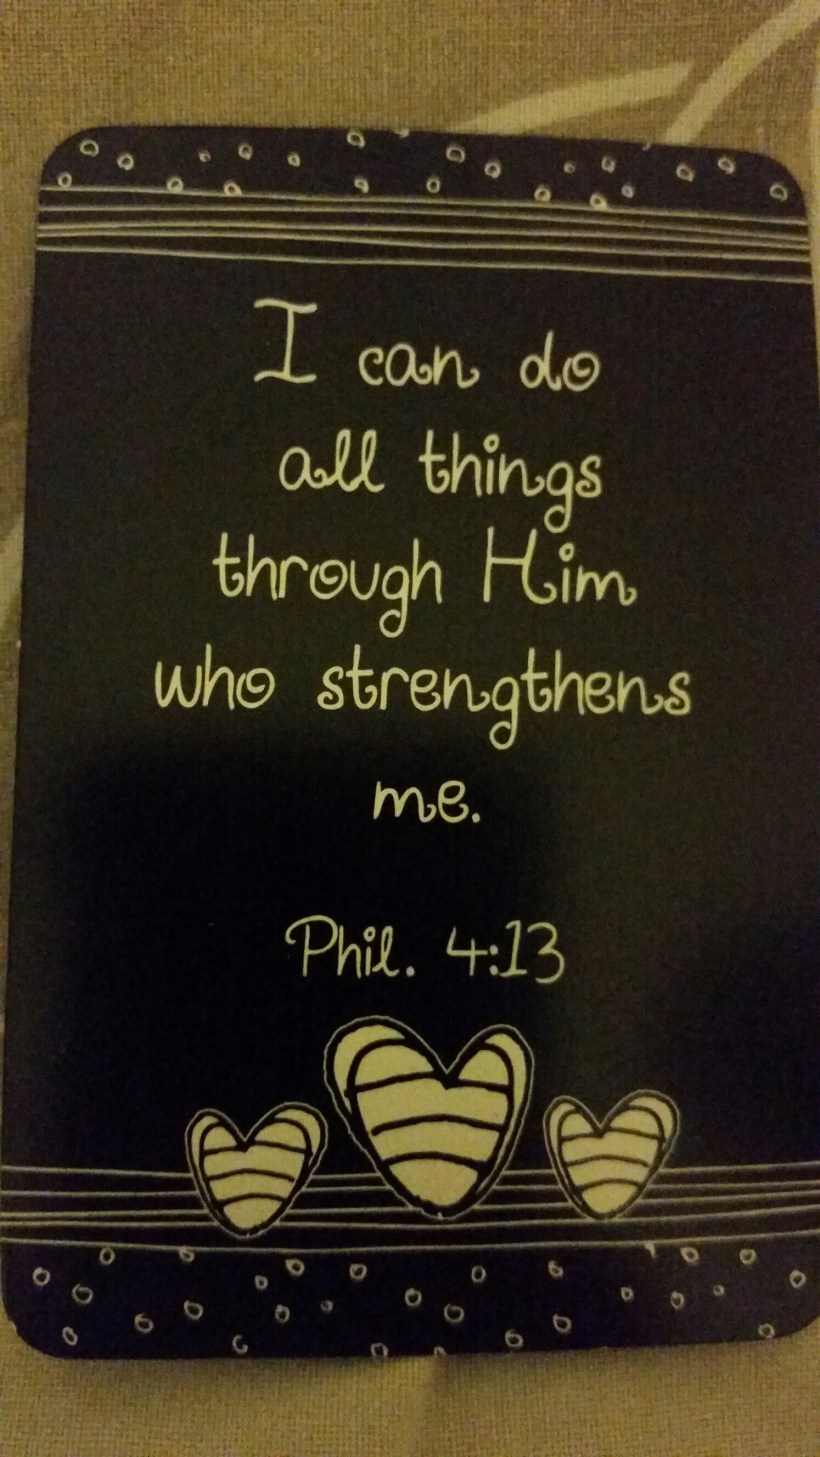 I can do
all things
through Him
who strengthens
me.
Phil. 4:13